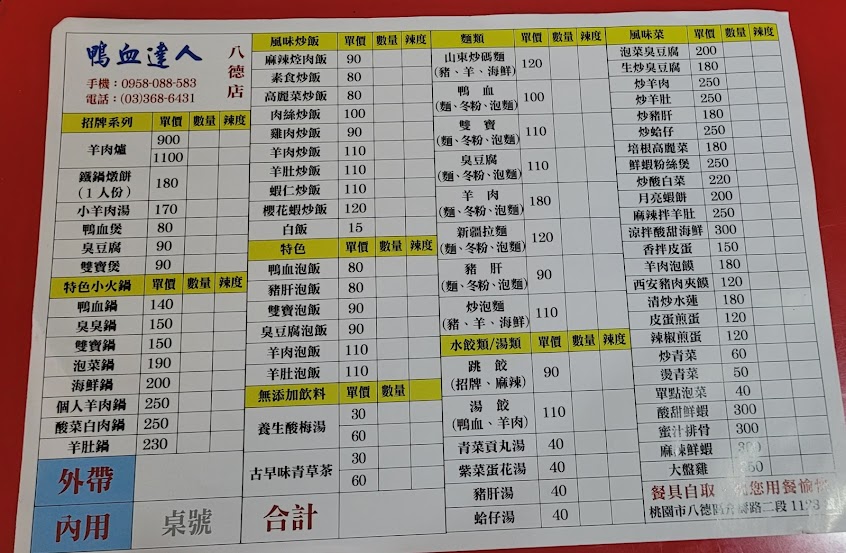 鴨血達人 八德店
手機：0958-088-583
電話：(03)368-6431
招牌系列 單價 數量 辣度
羊肉爐 900
1100
鐵鍋燉餅(1人份) 180
小羊肉湯 170
鴨血煲 80
臭豆腐 90
雙寶煲 90
特色小火鍋 單價 數量 辣度
鴨血鍋 140
臭臭鍋 150
雙寶鍋 150
泡菜鍋 190
海鮮鍋 200
個人羊肉鍋 250
酸菜白肉鍋 250
羊肚鍋 230
外帶
內用 桌號
風味炒飯 單價 數量 辣度
麻辣焢肉飯 90
素食炒飯 80
高麗菜炒飯 80
肉絲炒飯 100
雞肉炒飯 90
羊肉炒飯 110
羊肚炒飯 110
蝦仁炒飯 110
櫻花蝦炒飯 120
白飯 15
特色 單價 數量 辣度
鴨血泡飯 80
豬肝泡飯 80
雙寶泡飯 90
臭豆腐泡飯 90
羊肉泡飯 110
羊肚泡飯 110
無添加飲料 單價 數量
養生酸梅湯 30
60
古早味青草茶 30
60
合計
麵類 單價 數量 辣度
山東炒碼麵 120
(豬、羊、海鮮)
鴨血 100
(麵、冬粉、泡麵)
雙寶 110
(麵、冬粉、泡麵)
臭豆腐 110
(麵、冬粉、泡麵)
羊肉 180
(麵、冬粉、泡麵)
新疆拉麵 120
(麵、冬粉、泡麵)
豬肝 90
(麵、冬粉、泡麵)
炒泡麵 110
(豬、羊、海鮮)
水餃類/湯類 單價 數量 辣度
跳餃 90
(招牌、麻辣)
湯餃 110
(鴨血、羊肉)
青菜貢丸湯 40
紫菜蛋花湯 40
豬肝湯 40
蛤仔湯 40
風味菜 單價 數量 辣度
泡菜臭豆腐 200
生炒臭豆腐 180
炒羊肉 250
炒羊肚 250
炒豬肝 180
炒蛤仔 250
培根高麗菜 180
鮮蝦粉絲煲 250
炒酸白菜 220
月亮蝦餅 200
麻辣拌羊肚 250
涼拌酸甜海鮮 300
香拌皮蛋 150
羊肉泡饃 180
西安豬肉夾饃 120
清炒水蓮 180
皮蛋煎蛋 120
辣椒煎蛋 120
炒青菜 60
燙青菜 50
單點泡菜 40
酸甜鮮蝦 300
蜜汁排骨 300
麻辣鮮蝦
大盤雞
餐具自取 您用餐愉
桃園市八德區 路二段